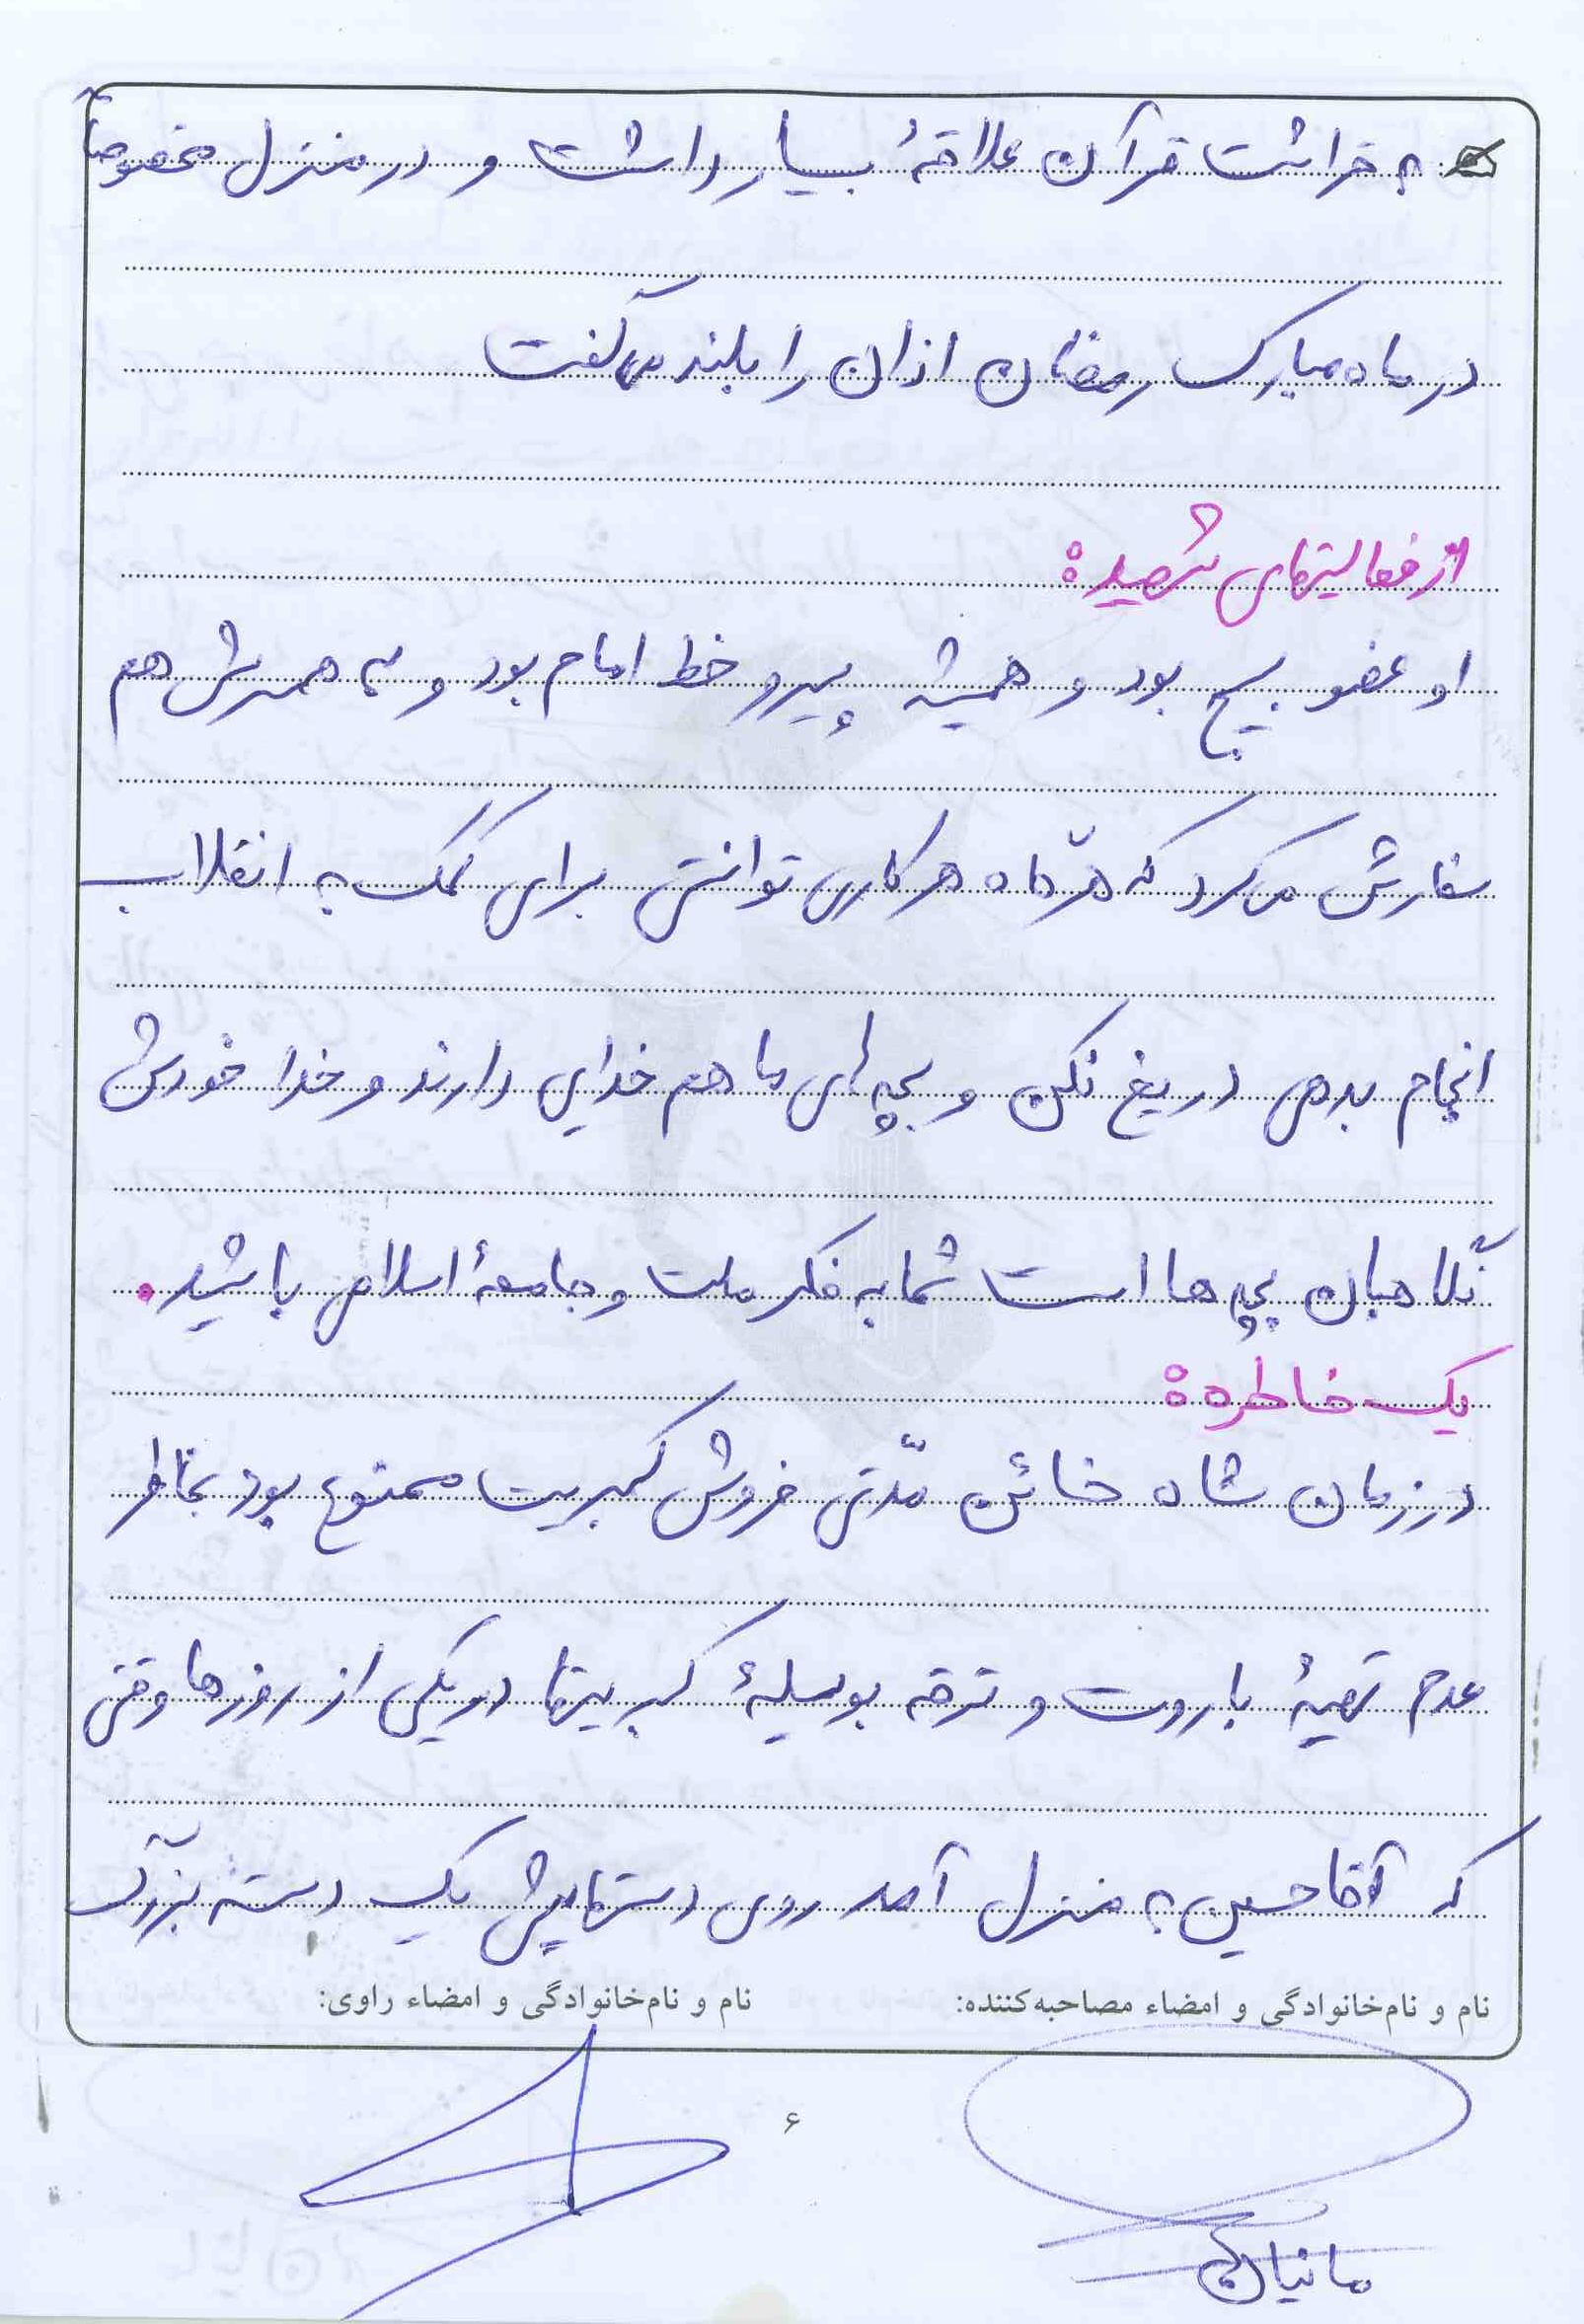 به قرائت قرآن علاقهٔ بسیار داشت و در منزل مخصوصاً
در ماه مبارک رمضان اذان را بلند می گفت
از فعالیتهای شهید:
او عضو بسیج بود و همیشه پیرو خط امام بود و به همسرش هم
سفارش می کرد که هر ماه هر کاری توانستی برای کمک به انقلاب
انجام بدهی دریغ نکن و بچه های ما هم خدایی دارند و خدا خودش
نگاهبان بچه ها است شما به فکر ملت و جامعهٔ اسلامی باشید.
یک خاطره:
در زمان شاه خائن مدّتی فروش کبریت ممنوع بود بخاطر
عدم تهیهٔ باروت و ترقه بوسیلهٔ کبریتها در یکی از روزها وقتی
که آقا حسین به منزل آمد روی دستهایش یک دسته بزرگ
نام و نام‌خانوادگی و امضاء مصاحبه‌کننده: نام و نام‌خانوادگی و امضاء راوی:
۶
مانیان